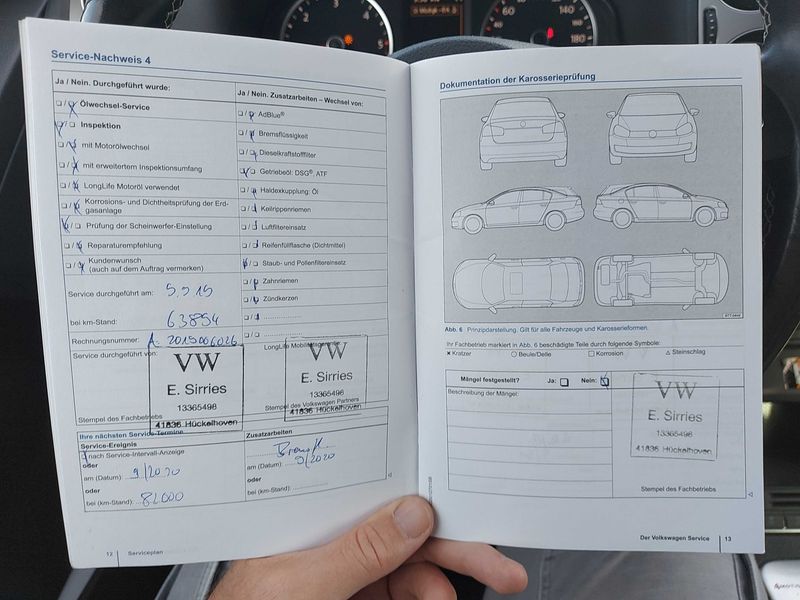 Service-Nachweis 4
Ja / Nein. Durchgeführt wurde:
Ölwechsel-Service
Inspektion
mit Motorölwechsel
mit erweitertem Inspektionsumfang
LongLife Motoröl verwendet
Korrosions- und Dichtheitsprüfung der Erd-
gasanlage
Prüfung der Scheinwerfer-Einstellung
Reparaturempfehlung
Kundenwunsch
(auch auf dem Auftrag vermerken)
Service durchgeführt am:
bei km-Stand: 63854
Rechnungsnummer: A 2019006026
Service durchgeführt von:
VW
E. Sirries
13365498
41836 Hückelhoven
Stempel des Fachbetriebs
Ja / Nein. Zusatzarbeiten – Wechsel von:
AdBlue®
Bremsflüssigkeit
Dieselkraftstofffilter
Getriebeöl: DSG®, ATF
Haldexkupplung: Öl
Keilrippenriemen
Luftfiltereinsatz
Reifenfüllflasche (Dichtmittel)
Staub- und Pollenfiltereinsatz
Zahnriemen
Zündkerzen
VW
E. Sirries
13365498
41836 Hückelhoven
Stempel des Volkswagen Partners
Ihre nächsten Service-Termine
Service-Ereignis
nach Service-Intervall-Anzeige
oder
am (Datum): 9/2020
oder
bei (km-Stand): 82000
Zusatzarbeiten
am (Datum): 9/2020
oder
bei (km-Stand):
12 Serviceplan
Dokumentation der Karosserieprüfung
Abb. 6 Prinzipdarstellung. Gilt für alle Fahrzeuge und Karosserieformen.
Ihr Fachbetrieb markiert in Abb. 6 beschädigte Teile durch folgende Symbole:
Kratzer Beule/Delle Korrosion Steinschlag
Mängel festgestellt? Ja: Nein:
Beschreibung der Mängel:
VW
E. Sirries
13365498
41836 Hückelhoven
Stempel des Fachbetriebs
Der Volkswagen Service 13